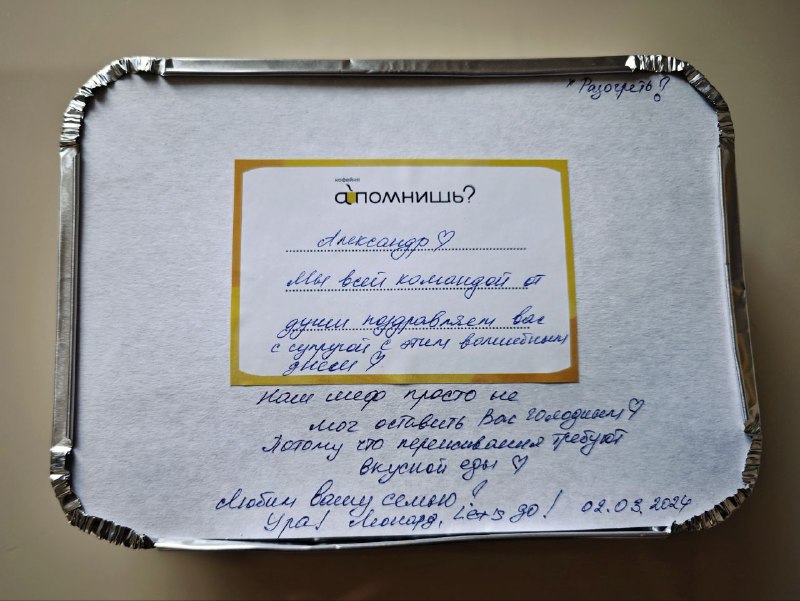 * Разогреть!
кофейня
а помнишь?
Александр ♡
Мы всей командой от
души поздравляем вас
с супругой с этим волшебным
днем ♡
Наш шеф просто не
мог оставить Вас голодным ♡
Потому что переживания требуют
вкусной еды ♡
Любим вашу семью!
Ура! Леонард, Let's go! 02.03.2024